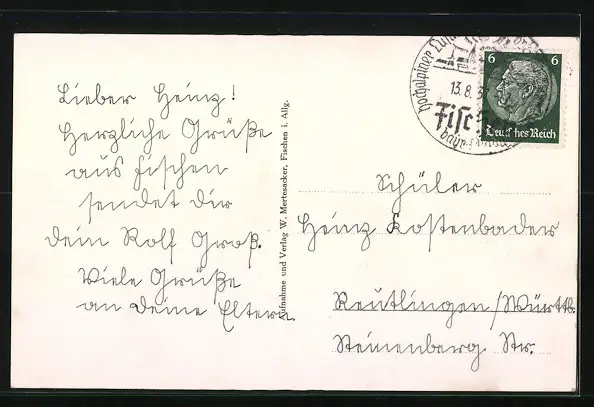 Lieber Heinz!
Herzliche Grüße
aus Fischen
sendet dir
dein Rolf Groß.
Viele Grüße
an deine Eltern.
Aufnahme und Verlag W. Mertesacker, Fischen i. Allg.
hochalpiner
13.8.3
Fisc
bayr.
6 6
Deutsches Reich
Schüler
Heinz Kostenbader
Reutlingen/Württb.
Steinenberg Str.